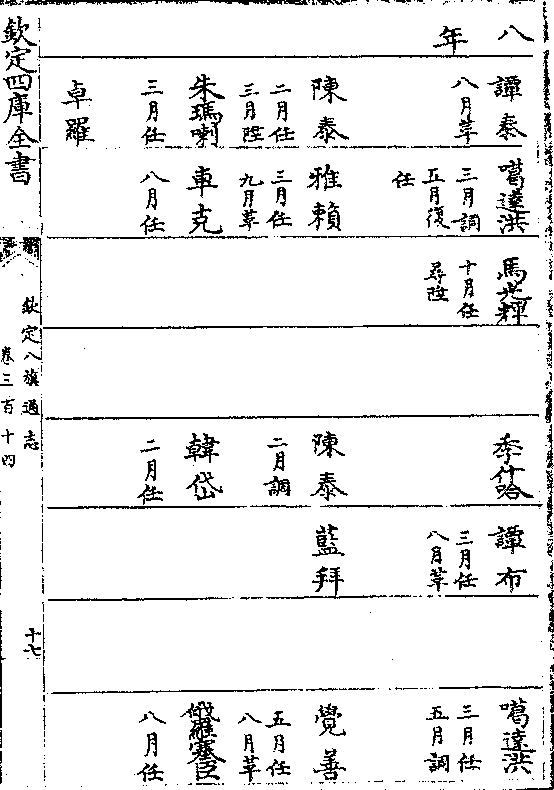 八年
譚泰
八月革
陳泰
二月任
三月陞
朱瑪喇
三月任
卓羅
噶達洪
三月調
五月復
任
雅賴
三月任
九月革
車克
八月任
馬光輝
十月任
尋陞
季什哈
陳泰
二月調
韓岱
二月任
譚布
三月任
八月革
藍拜
噶達洪
三月任
五月調
覺善
五月任
八月革
俄羅塞臣
八月任
欽定四庫全書
欽定八旗通志
卷三百十四
十七